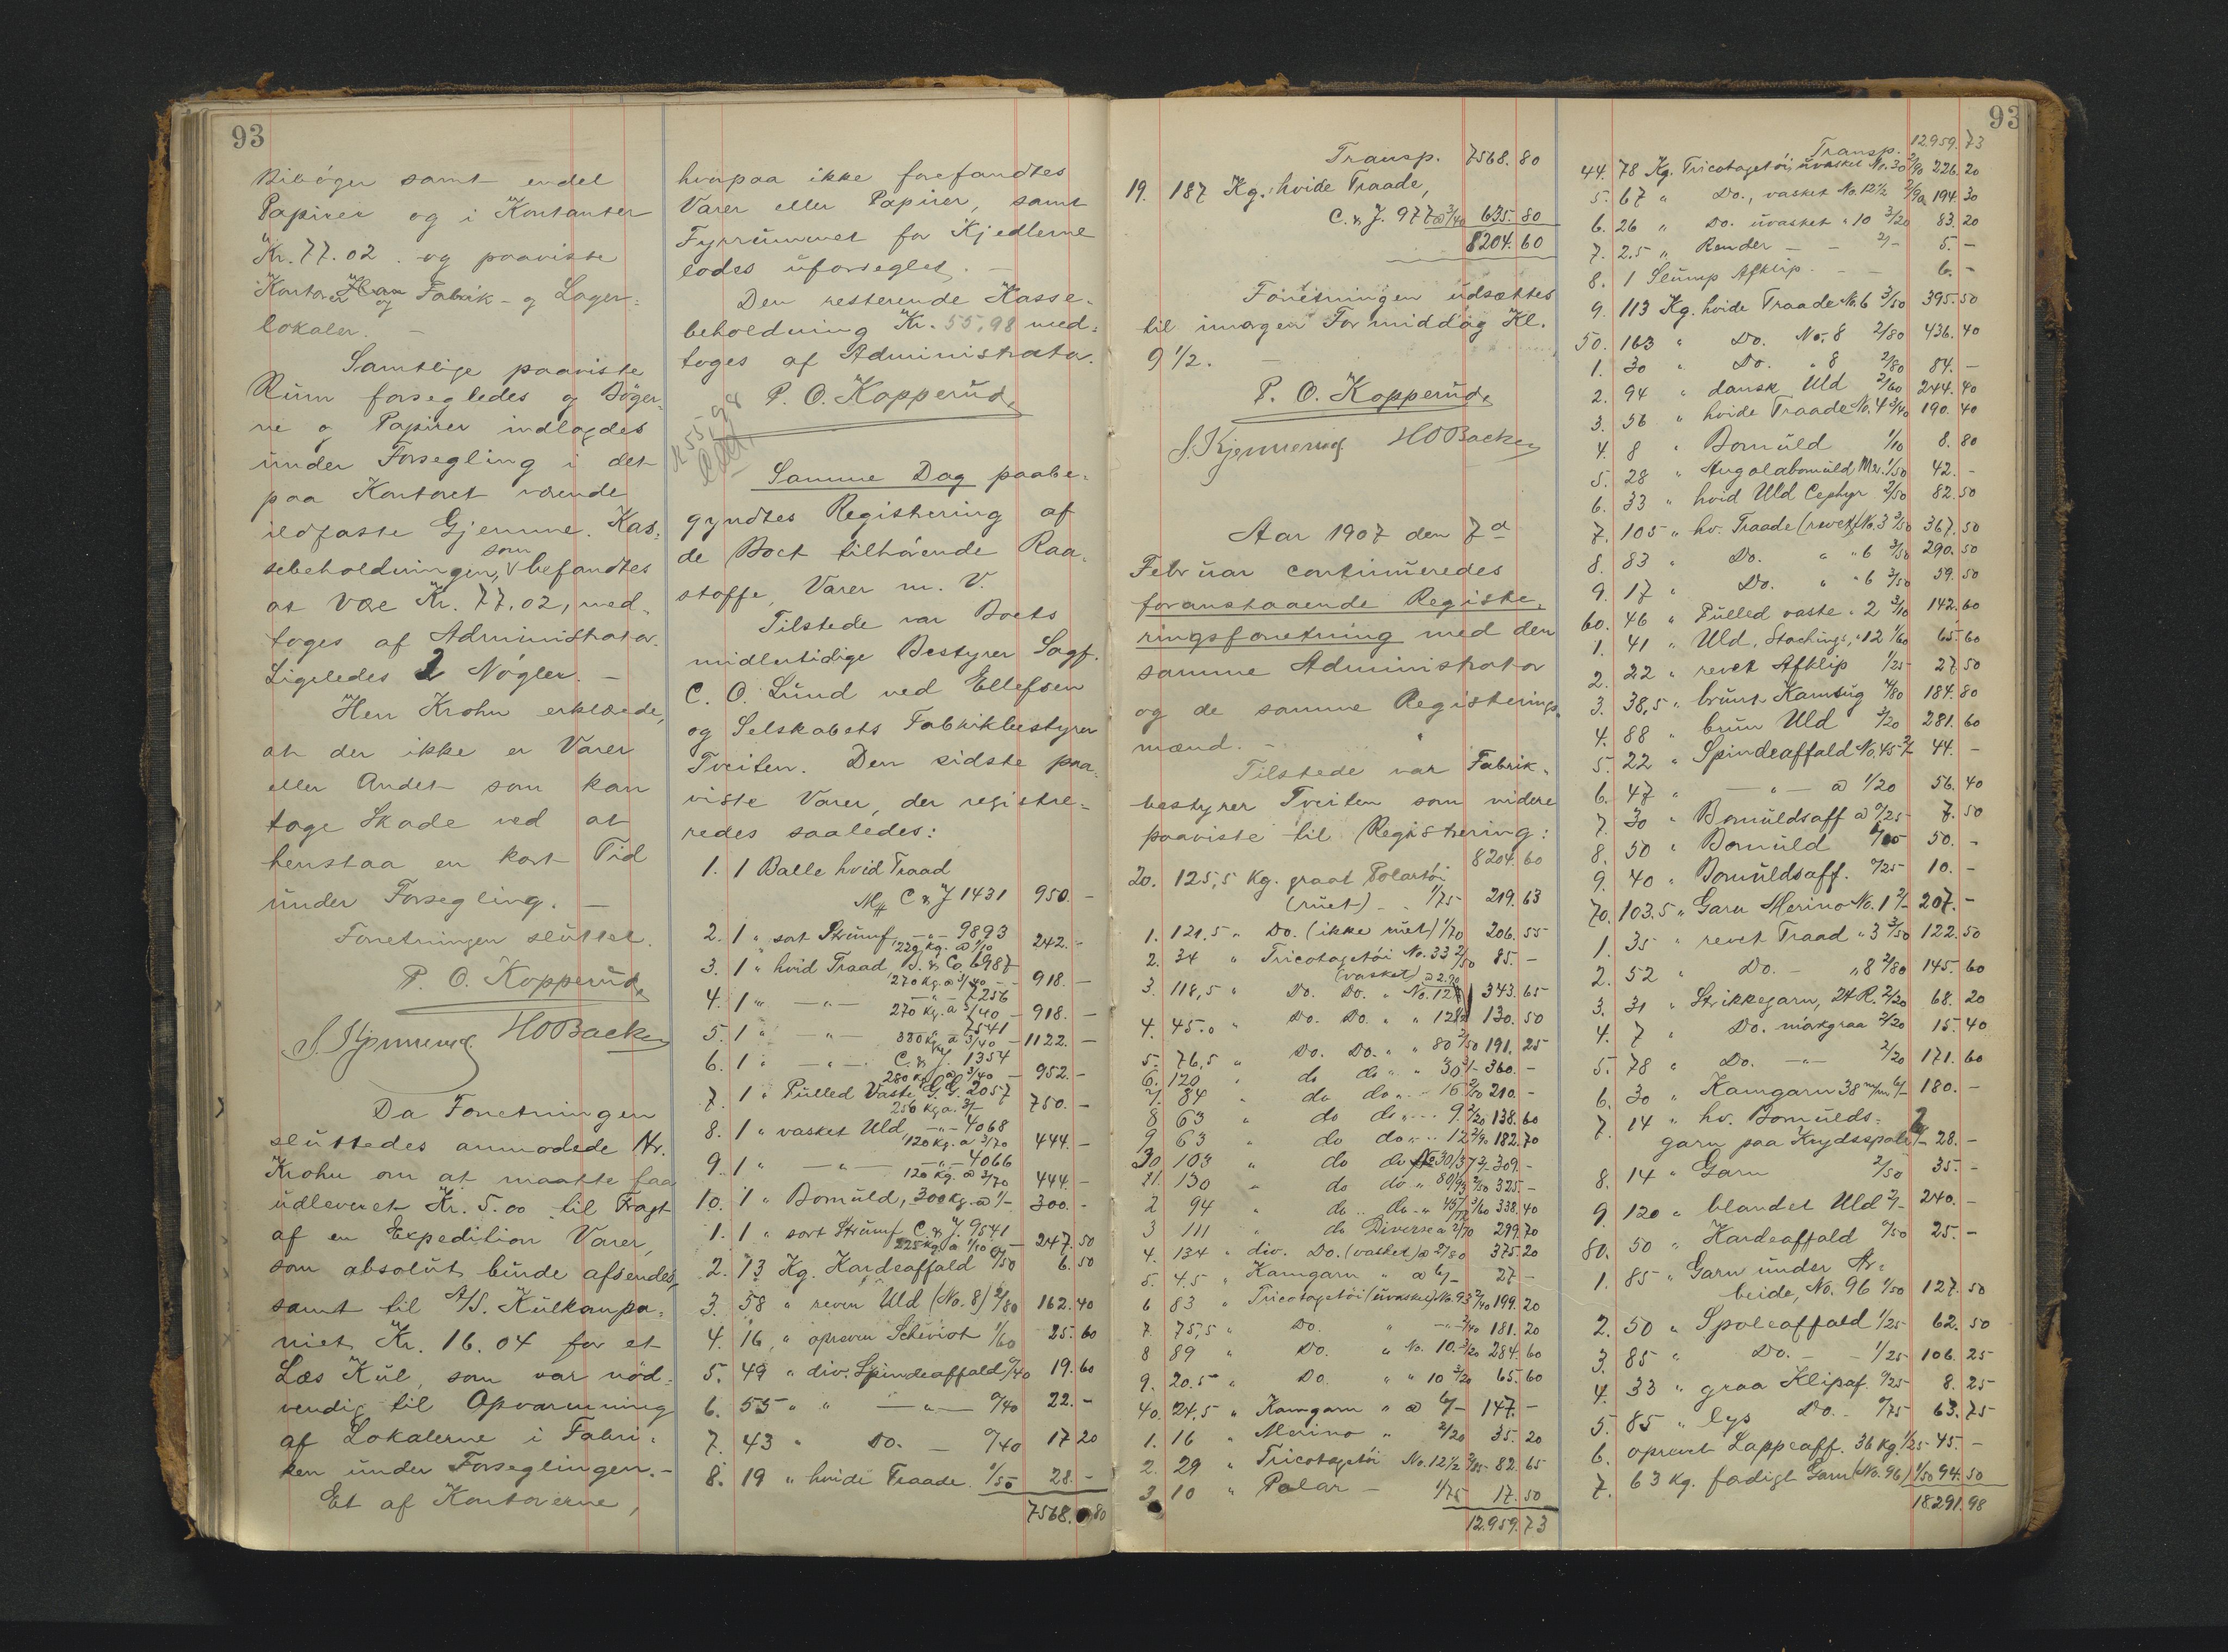 93
Bibøger samt endel
Papirer og i Kontanter
Kr. 77.02. og paaviste
Kontor og Fabrik- og Lager=
lokaler. —
Samtlige paaviste
Rum forsegledes og Bøger-
ne og Papirer indlagdes
under Forsegling i det
paa Kontoret værende
ildfaste Gjemme. Kas=
sebeholdningen, som befandtes
at være Kr. 77.02, med-
toges af Administrator.
Ligeledes 2 Nøgler. —
Herr Krohn erklærede,
at der ikke er Varer
eller Andet som kan
tage Skade ved at
henstaa en kort Tid
under Forsegling. —
Forretningen sluttet.
P. O. Kopperud
HOBacken
Da Forretningen
sluttedes anmodede Hr.
Krohn om at maatte faa
udleveret Kr. 5.00 til Fragt
af en Expedition Varer,
som absolut burde afsendes,
samt til A/S. Kulkompa=
niet Kr. 16.04 for et
Læs Kul, som var nød=
vendig til Opvarmning
af Lokalerne i Fabri-
ken under Forseglingen. —
Et af Kontorerne,
hvorpaa ikke forefandtes
Varer eller Papirer, samt
Fyrrummet for Kjedlerne
lodes uforseglet. —
Den resterende Kasse-
beholdning Kr. 55,98 med=
toges af Administrator.
P. O. Kopperud
Kr 55-98
Samme Dag paabe-
gyndtes Registrering af
de Boet tilhørende Raa-
stoffe, Varer m. V.
Tilstede var Boets
midlertidige Bestyrer Sagf.
C. O. Lund ved Ellefsen
og Selskabets Fabrikbestyrer
Tveiten. Den sidste paa-
viste Varer, der registre=
redes saaledes:
1. 1 Balle hvid Traad
M# C & J 1431 950. -
2. 1 " sort Strümf —"— 9893
229 Kg. a 1/10 242. -
3. 1 " hvid Traad, B. & Co. 6987
270 Kg. a 3/40 - - 918. -
4. 1 " —"— —"— 7256
270 Kg. a 3/40 - 918. -
5. 1 " " — 7541
330 Kg. a 3/40 - 1122. -
6. 1 " —"— C. & J. 1354
280 Kg. a 3/40 - 952. -
7. 1 " Pulled Vaste G. G. 2057
250 Kg. a. 3/- 750. -
8. 1 " vasket Uld, —"— 4068
120 Kg. a 3/70 444. -
9. 1 " —"— —"— 4066
120 Kg. a 3/70 444. -
10. 1 " Bomuld, 300 Kg. a 1/- 300. -
1. 1 " sort Strümf C. & J. 9541
225 Kg. a 1/10 - 247. 50
2. 13 Kg. Kardeaffald 0/50 6. 50
3. 58 " reven Uld (No. 8) 2/80 162. 40
4. 16 " opreven Scheviot 1/60 25. 60
5. 49 " div. Spindeaffald 0/40 19. 60
6. 55 " " —"— 0/40 22. -
7. 43 " Do. — 0/40 17 20
8. 19 " hvide Traade. 1/50 28. -
7568. 80
Transp. 7568. 80
19. 187 Kg. hvide Traade,
C. & J. 977 a 3/40 635. 80
8204. 60
Forretningen udsættes
til imorgen Formiddag Kl.
9 1/2. —
P. O. Kopperud
HOBacken
Aar 1907 den 7d
Februar continueredes
foranstaaende Registre-
ringsforretning med den
samme Administrator
og de samme Registrerings-
mænd. —
Tilstede var Fabrik-
bestyrer Tveiten som videre
paaviste til Registrering:
8204. 60
20. 125,5 Kg. graat Polartøi
(ruet) - - 1/75 219. 63
1. 121,5 " Do. (ikke ruet) 1/70 206. 55
2. 34 " Tricotagetøi No. 33 2/50 85. -
3. 118,5 " Do. Do. (vasket) a 2.90 " No. 12 343. 65
4. 45.0 " Do. Do. " " 12 130. 50
5. 76,5 " Do. Do. " " 80 2/50 191. 25
6. 120 " do do " " 30 3/- 360. -
7. 84 " do do " " 16 2/50 210. -
8 63 " do do " " 9 2/20 138. 60
9 63 " do do " " 12 2/90 182. 70
30 103 " do do No 30/37 3/- 309. -
31. 130 " do do " 80/93 2/50 325. -
2 94 " do do " 3/60 338. 40
3 111 " do Diverse a 2/70 299. 70
4. 134 " div. Do. (vasket) a 2/80 375. 20
5. 4.5 " Kamgarn " a 6/- 27 -
6 83 " Tricotagetøi (uvasket) No. 93 2/40 199. 20
7. 75,5 " Do. " —"— 2/40 181. 20
8 89 " Do. " No. 10. 3/20 284. 60
9. 20.5 " Do. " " 10 3/20 65. 60
40. 24,5 " Kamgarn " a 6/- 147. -
1. 16 " Merino " 2/20 35. 20
2. 29 " Tricotagetøi No. 12 1/2 2/85 82. 65
3 10 " Polar - 1/75 17. 50
12.959. 73
93
Transp. 12959. 73
44. 78 Kg. Tricotagetøi, uvasket No. 30 2/90 226. 20
5. 67 " Do., vasket No. 12 1/2 2/90 194. 30
6. 26 " Do. uvasket " 10 3/20 83. 20
7. 2.5 " Render — - 2/- 5. -
8. 1 Slump Afklip. - - 6. -
9. 113 Kg. hvide Traade No. 6 3/50 395. 50
50. 163 " Do. No. 8 2/80 436. 40
1. 30 " Do. " 8 2/80 84. -
2. 94 " dansk Uld 2/60 244. 40
3. 56 " hvide Traade No. 4 3/40 190. 40
4. 8 " Bomuld 1/10 8. 80
5. 28 " Angolabomuld Mrs. 1/50 42. -
6. 33 " hvid Uld Cephyr 2/50 82. 50
7. 105 " hv. Traade (revet) No. 3 3/50 367. 50
8. 83 " Do. " " 6 3/50 290. 50
9. 17 " Do. " " 6 3/50 59. 50
60. 46 " Pulled vaste " 2 3/10 142. 60
1. 41 " Uld, Stockings, " 12 1/60 65. 60
2. 22 " revet Afklip 1/25 27. 50
3. 38,5 " brunt Kamtug 4/80 184. 80
4. 88 " brun Uld 3/20 281. 60
5. 22 " Spindeaffald No. 45 2/- 44. -
6. 47 " —"— a 1/20 56. 40
7. 30 " Bomuldsaff a 0/25 7. 50
8. 50 " Bomuld 50. -
9. 40 " Bomuldsaff. 0/25 10. -
70. 103.5 " Garn Merino No. 1 2/- 207. -
1. 35 " revet Traad " 3 3/50 122. 50
2. 52 " Do. - " 8 2/80 145. 60
3. 31 " Strikkegarn, 24 R. 2/20 68. 20
4. 7 " Do. mørkgraa 2/20 15. 40
5. 78 " Do. —"— 2/20 171. 60
6. 30 " Kamgarn 38 m/m 6/- 180. -
7. 14 " hv. Bomulds=
garn paa Krydsspole 2/- 28. -
8. 14 " Garn 2/50 35. -
9. 120 " blandet Uld 2/- 240. -
80. 50 " Kardeaffald 0/50 25. -
1. 85 " Garn under Ar=
beide, No. 96 1/50 127. 50
2. 50 " Spoleaffald 1/25 62. 50
3. 85 " Do. - - 1/25 106. 25
4. 33 " graa Klipaf. 0/25 8. 25
5. 85 " lys Do. - 0/75 63. 75
6. oprevet Lappeaff. 36 Kg. 1/25 45. -
7. 63 Kg. fadigt Garn (No. 96) 1/50 94. 50
18.291. 98